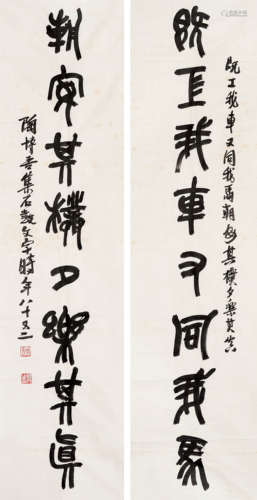 既工我車又同我馬朝安其樸夕樂其真
既工我車又同我馬
朝安其樸夕樂其真
陶博吾集石鼓文字時年八十又二